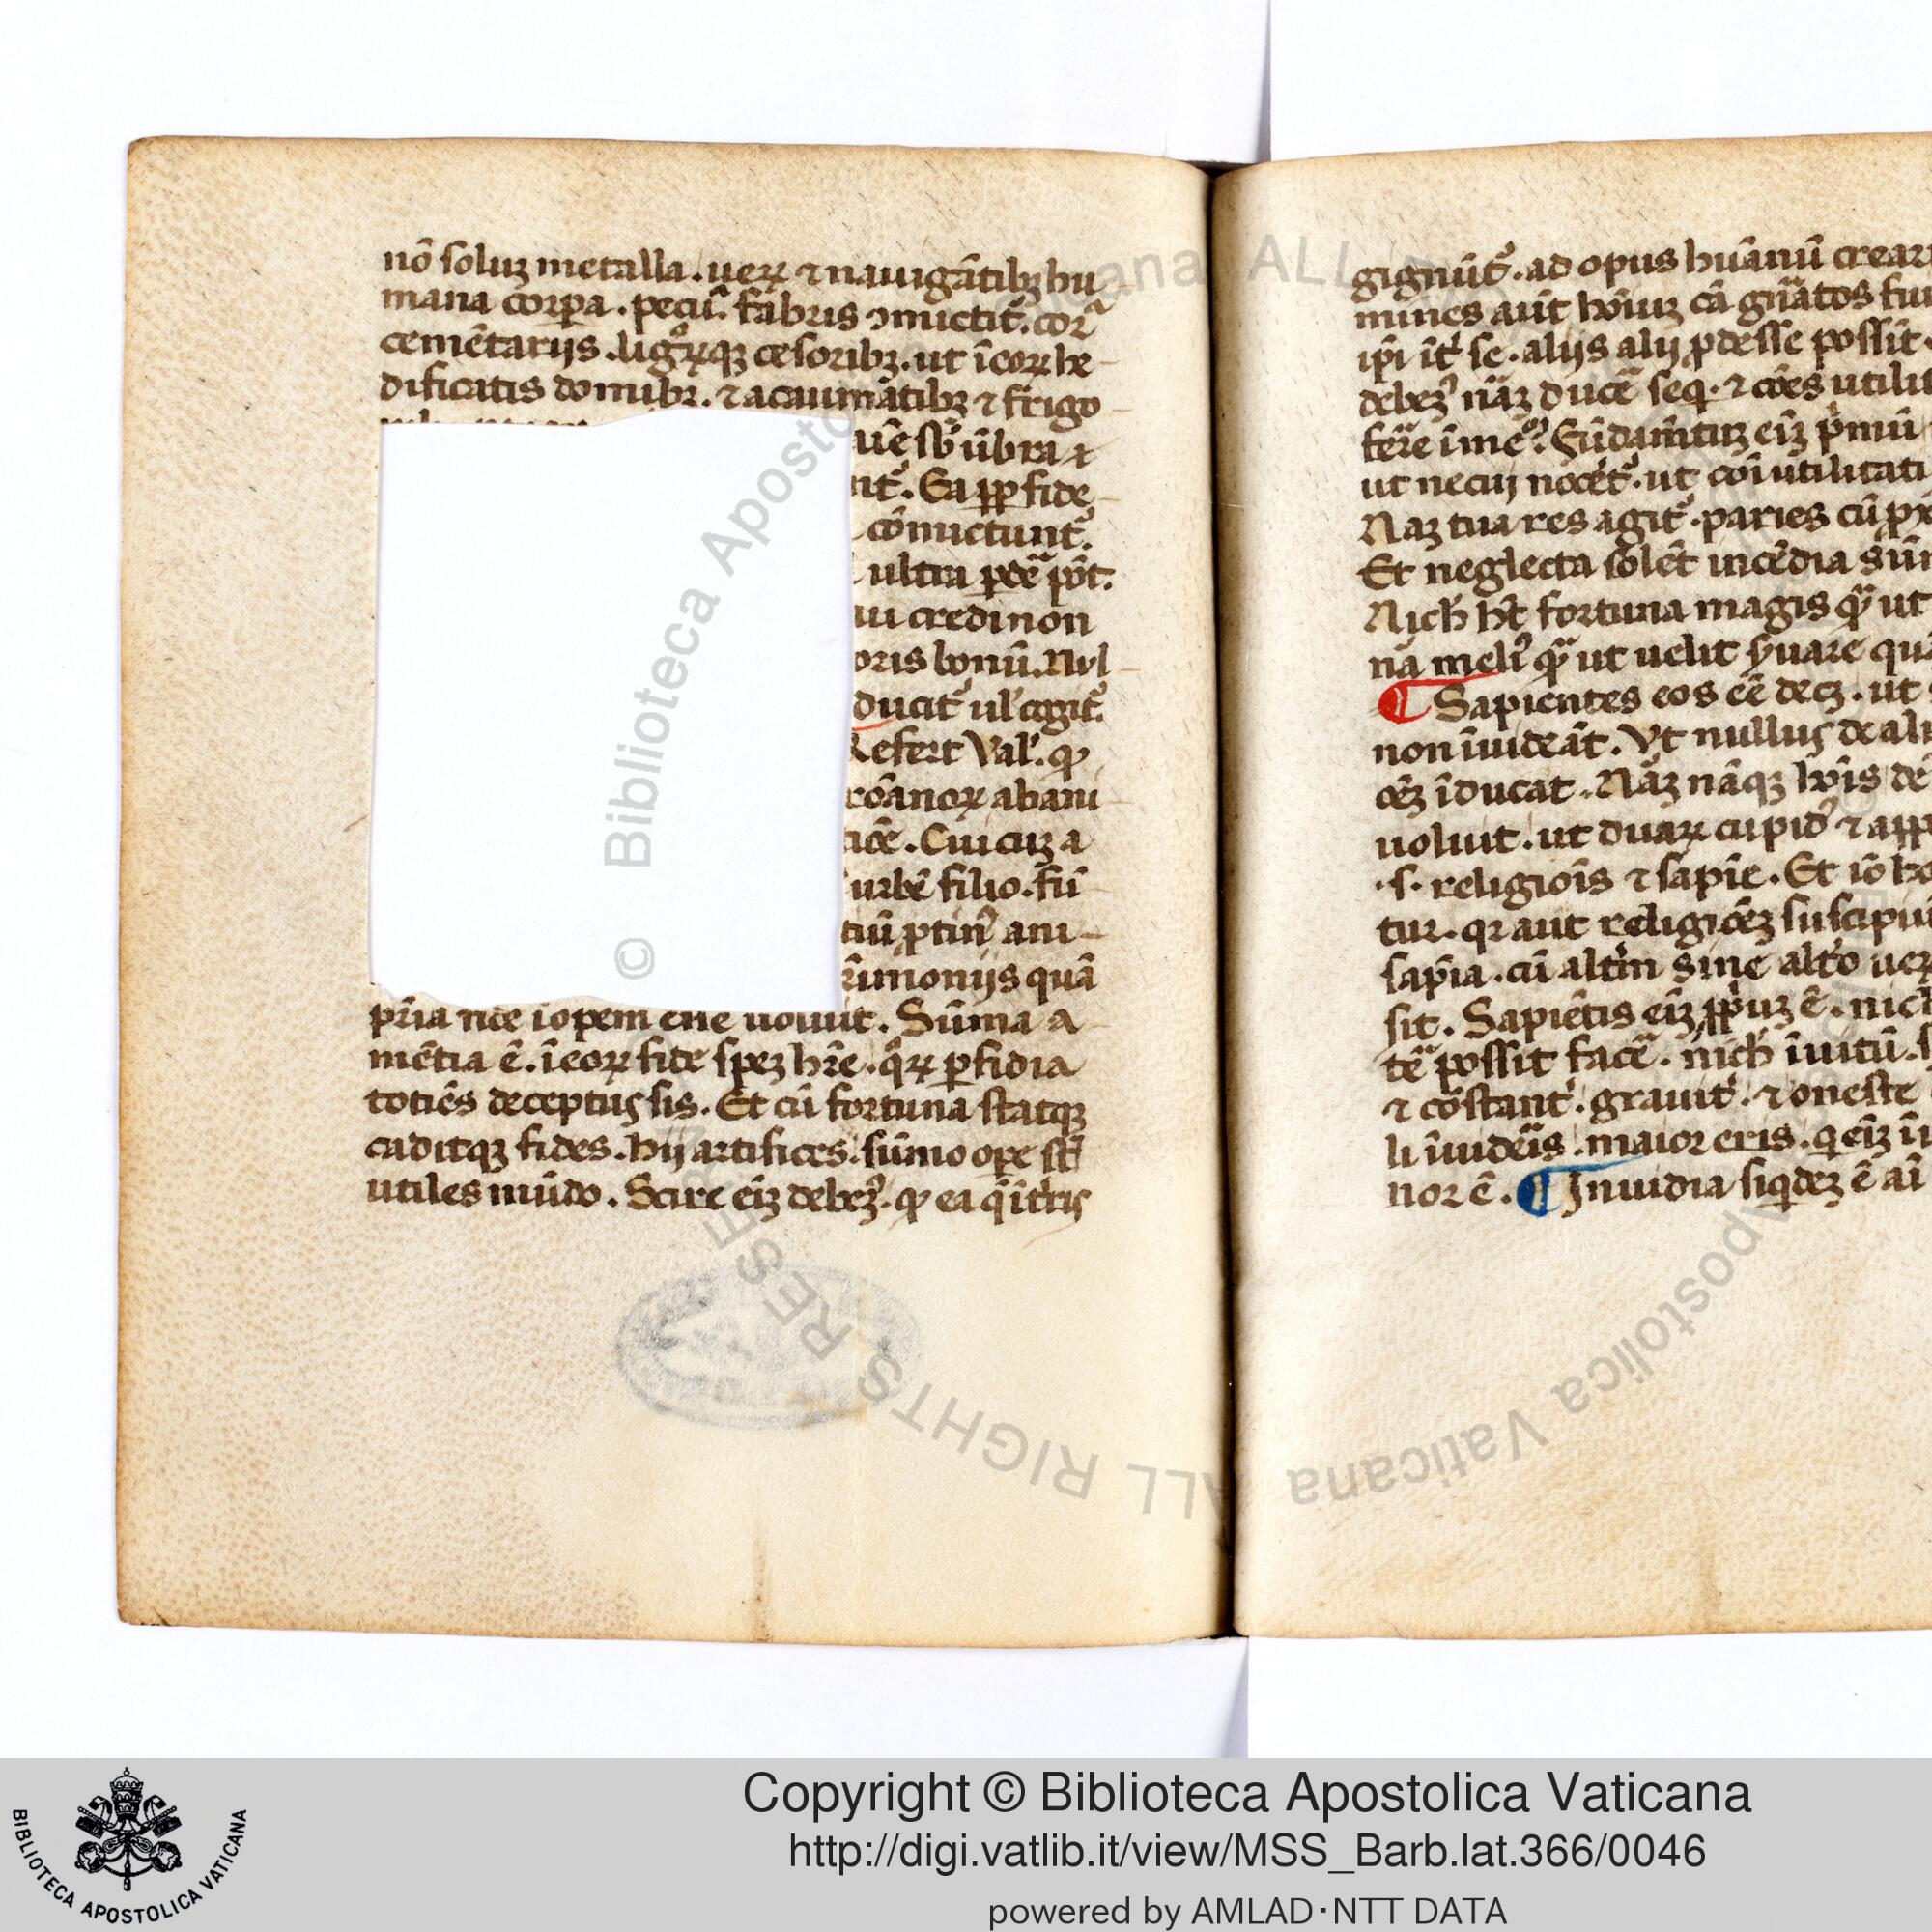 nō soluz metalla. ueꝝ ⁊ nauigātibꝫ hu
mana corꝑa. pecu̅. fabris ꝯmictit̉. cor̄
cemētarijs. ligꝝqꝫ cesoribꝫ. ut īeoꝝ he
dificatis domibꝫ. ⁊ a caumātibꝫ ⁊ frigo
uē sb̉ ūbra ⁊
nt̉. Ea ꝓp fide
cōmictunt̉.
ultra ꝑdē pōt.
ui credi non
oris bonū. Nul
ducit̉ ul̉ agit̉.
Refert Val̉. ꝙ
rōanoꝝ abani
icē. Cui cuz a
urbē filio. fūi
tiū ꝑtin̉ ani
rimonijs quā
pria nc̄e iopem eñe uoluit. Sūma a
mētia ē. īeoꝝ fide spez hr̄e. q̊ꝝ ꝑfidia
totiēs deceptus sis. Et cū fortuna statqꝫ
caditqꝫ fides. Hij artifices. sūmo oꝑe st̄
utiles mūdo. Scire eīz debez̉. ꝙ ea q̄ ītris
gignūt̉. ad opus huānū crear
mines aūt hoīuz cā gn̄atos fui
ip̄i īt̉ se. alijs alij ꝓdesse possit.
debez̉ nāz ducē seq. ⁊ cōes utilit
ferre ī me̊. Fūdamtuz eīz p̄mū
ut necui nocet̉. ut coī utilitati
Naz tua res agit̉. paries cū px
Et neglecta solēt incēdia sūm
Nich̄ ht̄ fortuna magis q̄ ut
na melỉ q̄ ut uelit ẜuare qua
¶ Sapientes eos eē decz. ut
non īuideāt. Vt nullus de ali
oēz īducat. Nāz nāqꝫ hoīs de
uoluit. ut duaꝝ cupid̉ ⁊ app
.s. religiōis ⁊ sapīe. Et iō ho
tur. qꝛ aut religiōez suscipiū
sapīa. cū altm̄ sine alt̉o uer
sit. Sapiētis eīz ꝓpuz ē. nich
tē possit facē. nich̄ īuitū. s
⁊ cōstant̉. grauit̉. ⁊ oneste
li īuideās. maior eris. q eīz īu
nor ē. ¶ Inuidia siqdez ē aī
© Biblioteca Apostolica Vaticana ALL RIGHTS RESERVED
BIBLIOTECA APOSTOLICA VATICANA
Copyright © Biblioteca Apostolica Vaticana
http://digi.vatlib.it/view/MSS_Barb.lat.366/0046
powered by AMLAD·NTT DATA